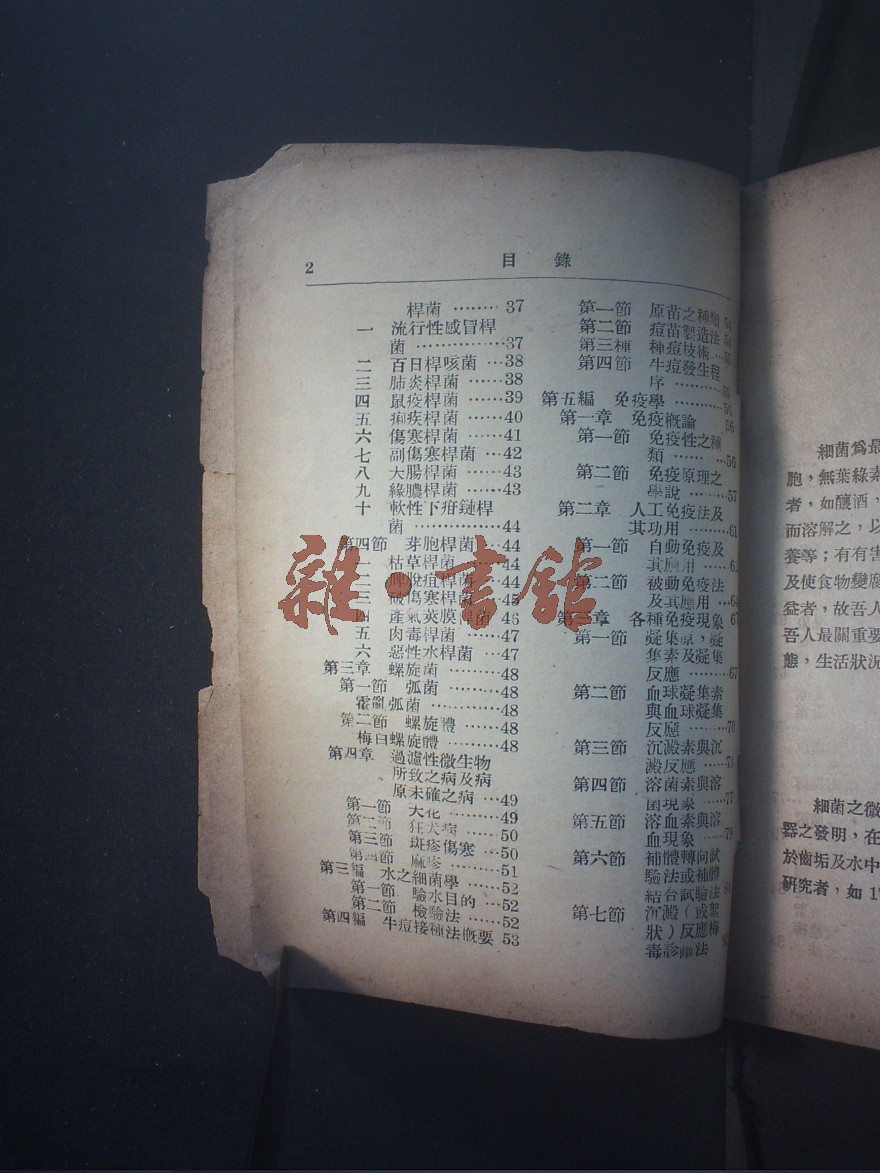 2
目錄
桿菌 ········ 37
一 流行性感冒桿
菌 ················37
二 百日桿咳菌 ···38
三 肺炎桿菌 ······38
四 鼠疫桿菌 ······39
五 痢疾桿菌 ······40
六 傷寒桿菌 ······41
七 副傷寒桿菌 ···42
八 大腸桿菌 ······43
九 綠膿桿菌 ······43
十 軟性下疳鏈桿
菌 ················44
第四節 芽胞桿菌 ···44
一 枯草桿菌 ······44
二 脾脫疽桿菌 ···44
三 破傷寒桿菌 ···45
四 產氣莢膜桿菌 46
五 肉毒桿菌 ······47
六 惡性水桿菌 ···47
第三章 螺旋菌 ·········48
第一節 弧菌 ·········48
霍亂弧菌 ············48
第二節 螺旋體 ·······48
梅白螺旋體 ·········48
第四章 過濾性微生物
所致之病及病
原未確之病 ···49
第一節 天花 ·········49
第二節 狂犬病 ······50
第三節 斑疹傷寒 ···50
第四節 麻疹 ·········51
第三編 水之細菌學 ······52
第一節 驗水目的 ···52
第二節 檢驗法 ······52
第四編 牛痘接種法概要 53
第一節 原苗之種類
第二節 痘苗製造法
第三種 種痘技術 ···
第四節 牛痘發生程
序 ············55
第五編 免疫學 ············56
第一章 免疫概論 56
第一節 免疫性之種
類 ······ ···56
第二節 免疫原理之
學說 ·········57
第二章 人工免疫法及
其功用 ·········61
第一節 自動免疫及
其應用 ······
第二節 被動免疫法
及其應用 ···
第三章 各種免疫現象 67
第一節 凝集原，凝
集素及凝集
反應 ·········67
第二節 血球凝集素
與血球凝集
反應 ·········70
第三節 沉澱素與沉
澱反應 ······
第四節 溶菌素與溶
菌現象 ······77
第五節 溶血素與溶
血現象 ······79
第六節 補體轉向試
驗法或補體
結合試驗法
第七節 沉澱（或絮
狀）反應梅
毒診斷法
細菌爲最
胞，無葉綠素
者，如釀酒，
而溶解之，以
養等；有有害
及使食物變腐
益者，故吾人
吾人最關重要
態，生活狀況
細菌之微
器之發明，在
於齒垢及水中
研究者，如 17
雜·書館